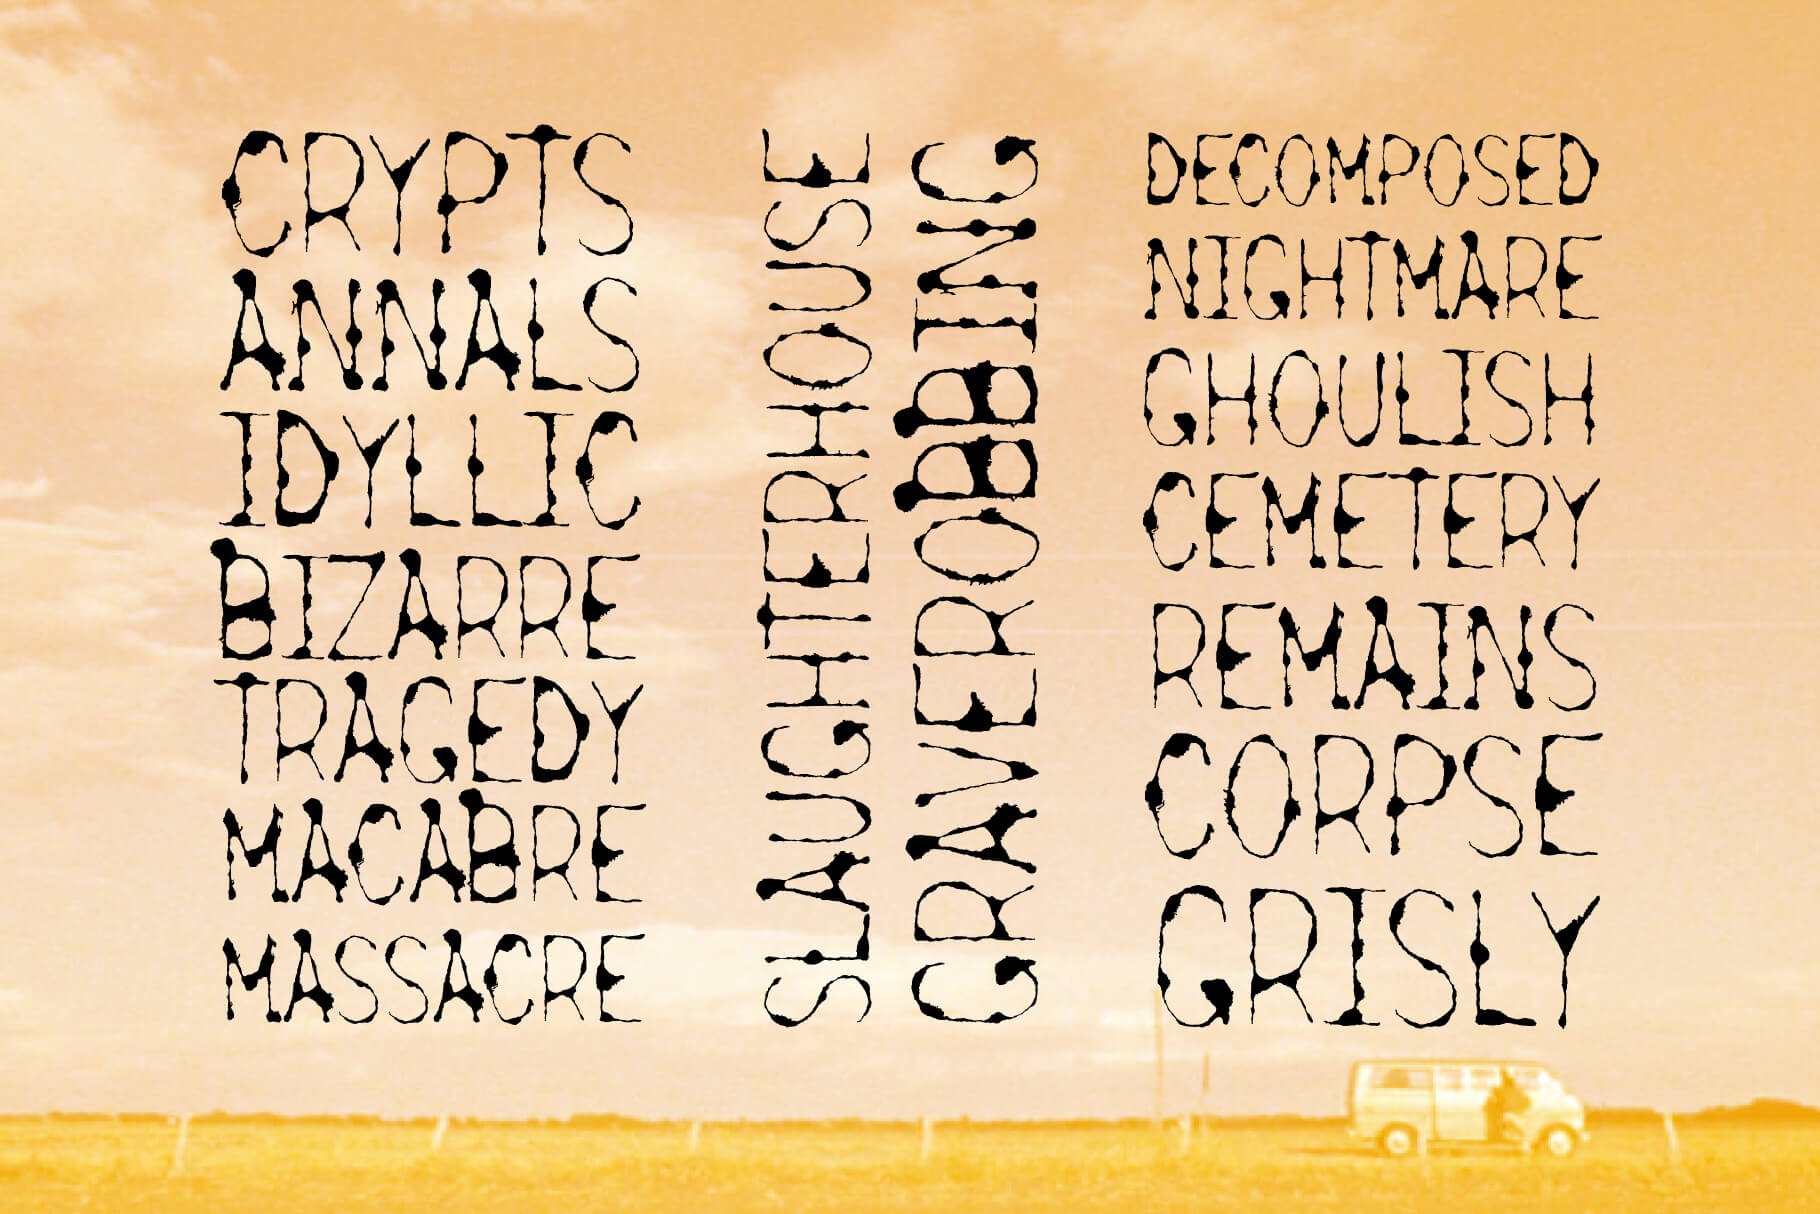 CRYPTS
ANNALS
IDYLLIC
BIZARRE
TRAGEDY
MACABRE
MASSACRE
SLAUGHTERHOUSE
GRAVEROBBING
DECOMPOSED
NIGHTMARE
GHOULISH
CEMETERY
REMAINS
CORPSE
GRISLY